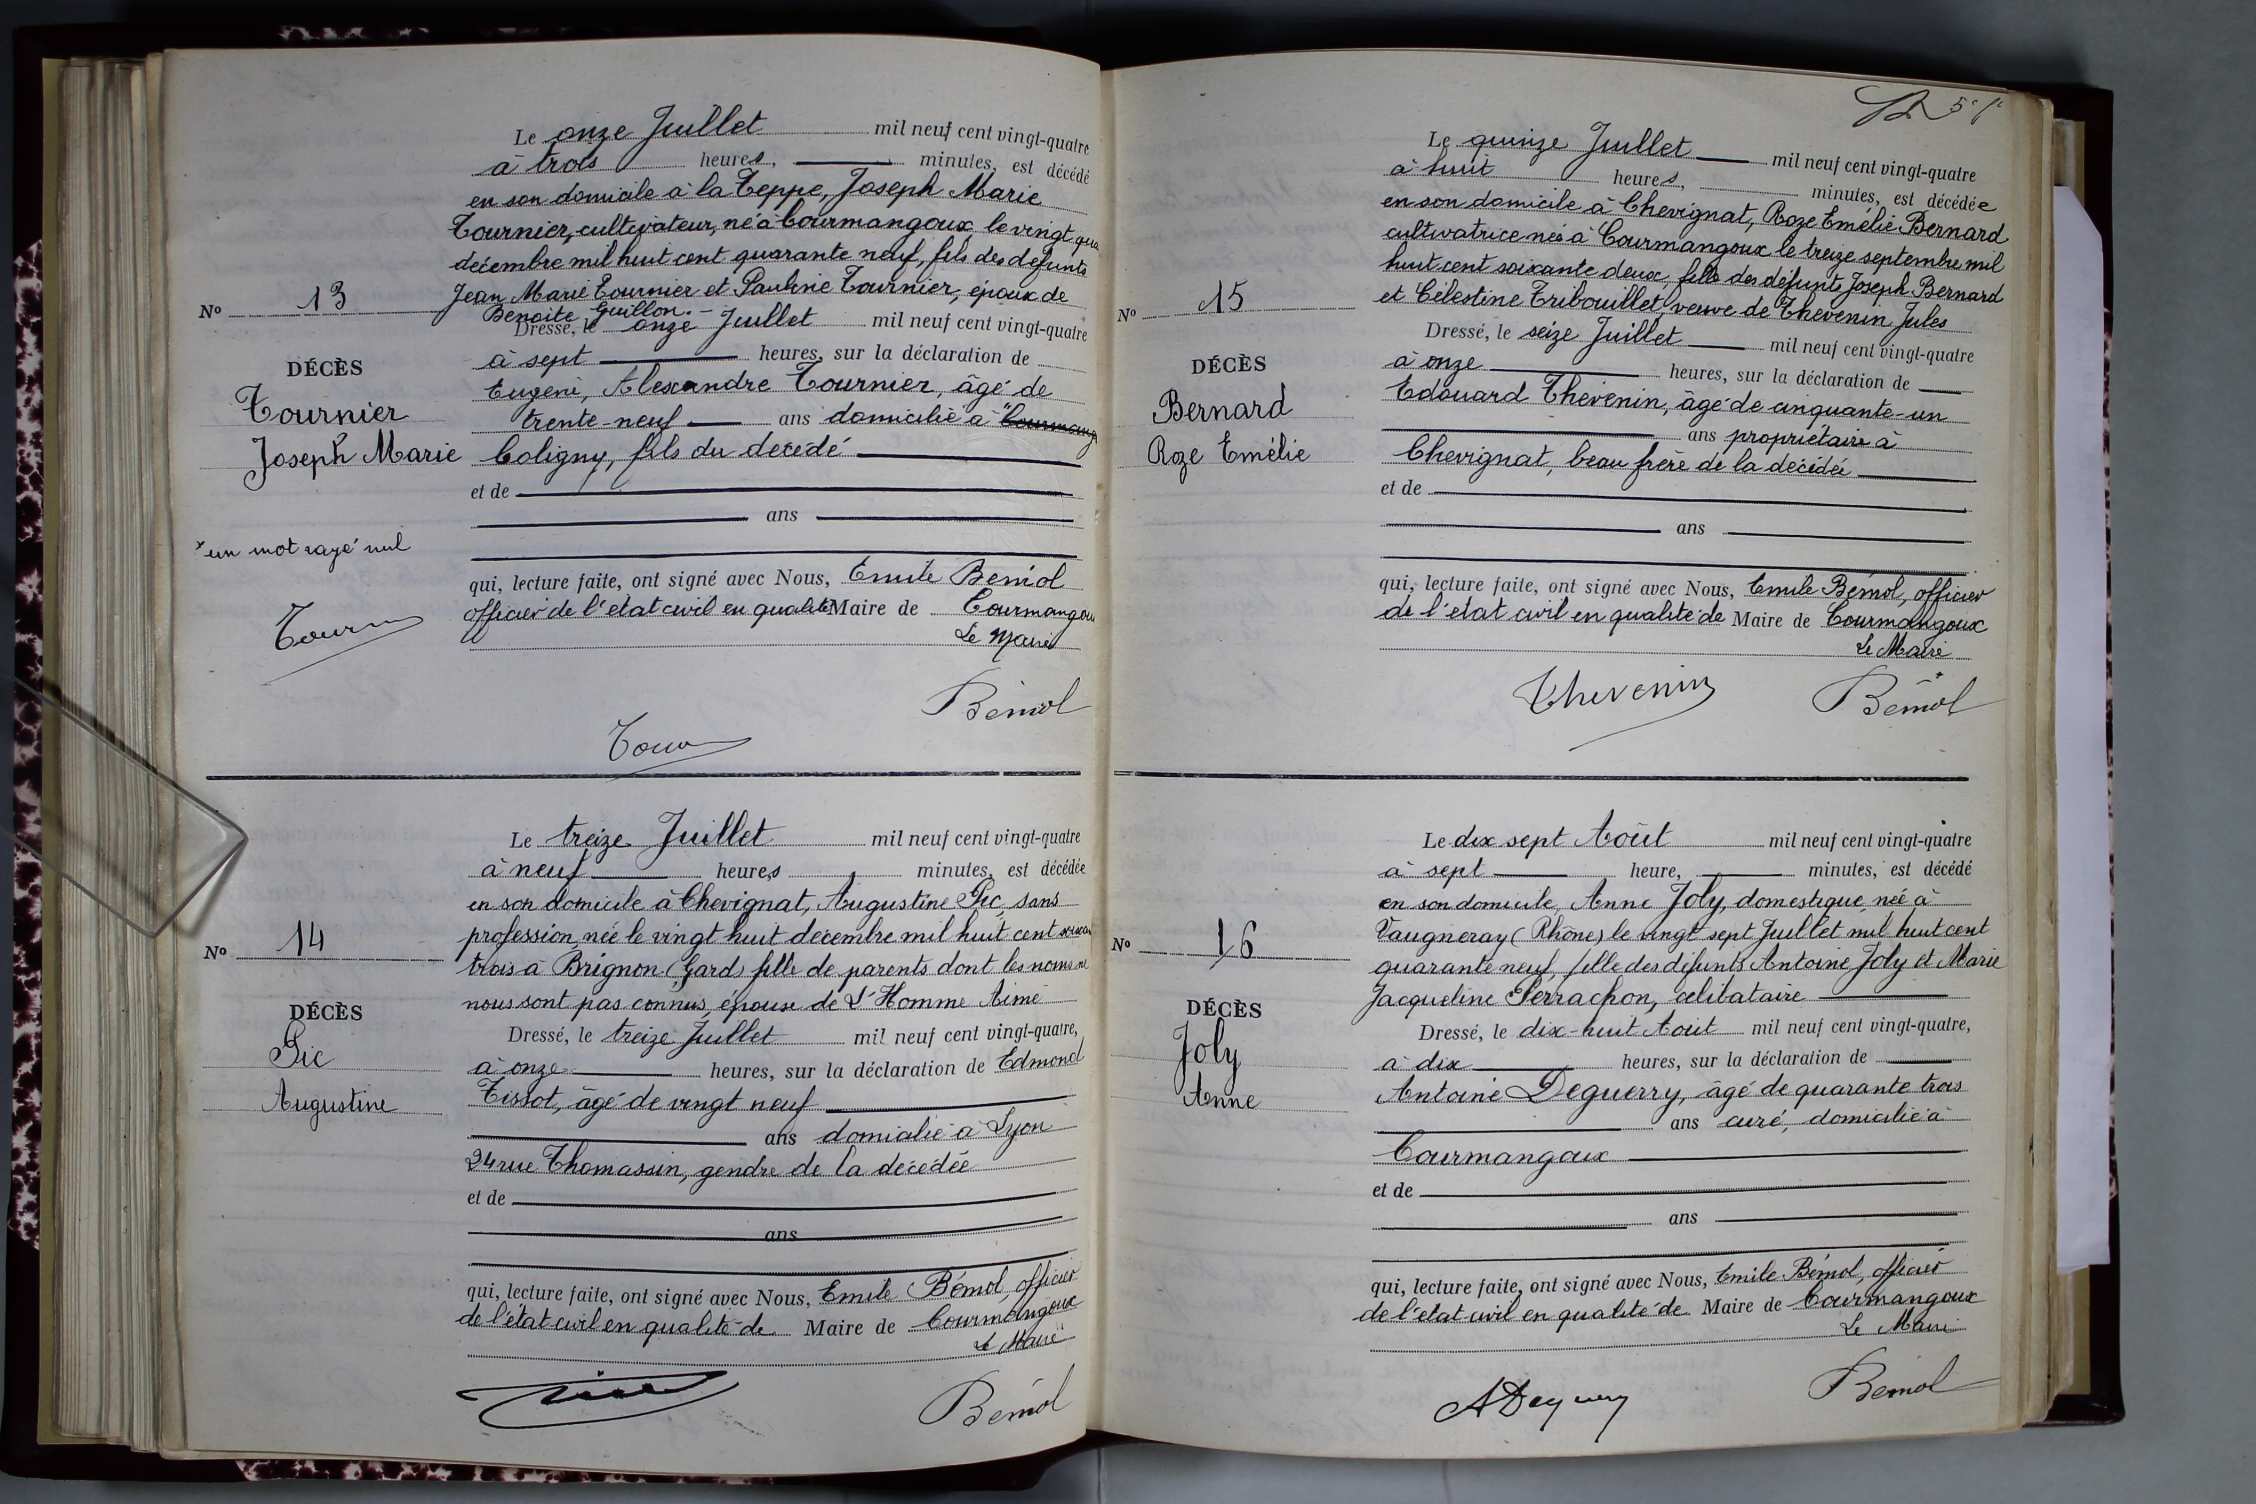 Le onze Juillet mil neuf cent vingt-quatre
à trois heures, minutes, est décédé
en son domicile à la Teppe, Joseph Marie
Tournier, cultivateur, né à Courmangoux le vingt
décembre mil huit cent quarante neuf, fils des défunts
Jean Marie Tournier et Pauline Tournier, époux de
Benoite Guillon.
Nº 13
Dressé, le onze Juillet mil neuf cent vingt-quatre
à sept heures, sur la déclaration de
DÉCÈS
Eugène, Alexandre Tournier, âgé de
Tournier
trente-neuf ans domicilié à
Joseph Marie
Coligny, fils du décédé
et de
ans
un mot rayé nul
qui, lecture faite, ont signé avec Nous, Emile Bémol
officier de l'état civil en qualité Maire de Courmangoux
Le Maire
Bémol
Le treize Juillet mil neuf cent vingt-quatre
à neuf heures minutes, est décédée
en son domicile à Chevignat, Augustine Pic, sans
profession, née le vingt huit décembre mil huit cent soixante
Nº 14
trois à Brignon (Gard) fille de parents dont les noms ne
nous sont pas connus, épouse de L'Homme Aimé
DÉCÈS
Dressé, le treize Juillet mil neuf cent vingt-quatre,
Pic
à onze heures, sur la déclaration de Edmond
Augustine
Tissot, âgé de vingt neuf
ans domicilié à Lyon
24 rue Thomassin, gendre de la décédée
et de
ans
qui, lecture faite, ont signé avec Nous, Emile Bémol, officier
de l'état civil en qualité de Maire de Courmangoux
Le Maire
Bémol
Le quinze Juillet mil neuf cent vingt-quatre
à huit heures, minutes, est décédée
en son domicile à Chevignat, Roze Emélie Bernard
cultivatrice née à Courmangoux le treize septembre mil
huit cent soixante deux, fille des défunts Joseph Bernard
Nº 15
et Célestine Tribouillet, veuve de Thevenin Jules
Dressé, le seize Juillet mil neuf cent vingt-quatre
DÉCÈS
à onze heures, sur la déclaration de
Bernard
Edouard Thévenin, âgé de cinquante-un
ans propriétaire à
Roze Emélie
Chevignat, beau frère de la décédée
et de
ans
qui, lecture faite, ont signé avec Nous, Emile Bémol, officier
de l'état civil en qualité de Maire de Courmangoux
Le Maire
Thevenin
Bémol
Le dix sept Août mil neuf cent vingt-quatre
à sept heure, minutes, est décédé
en son domicile, Anne Joly, domestique née à
Vaugneray (Rhône) le vingt sept Juillet mil huit cent
Nº 16
quarante neuf, fille des défunts Antoine Joly et Marie
Jacqueline Perrachon, célibataire
DÉCÈS
Dressé, le dix-huit Août mil neuf cent vingt-quatre,
Joly
à dix heures, sur la déclaration de
Anne
Antoine Deguerry, âgé de quarante trois
ans curé, domicilié à
Courmangoux
et de
ans
qui, lecture faite, ont signé avec Nous, Emile Bémol, officier
de l'état civil en qualité de Maire de Courmangoux
Le Maire
ADeguerry
Bémol